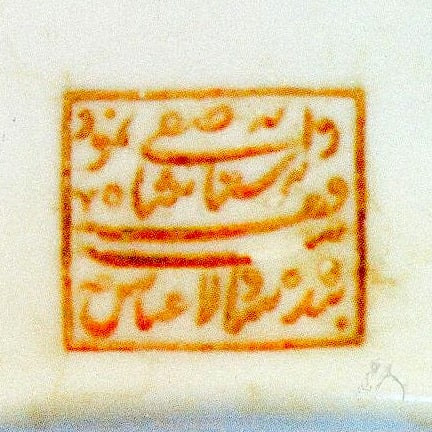 بنده شاه ولایت عباس
وقف بر آستانه شاه
صفی نمود